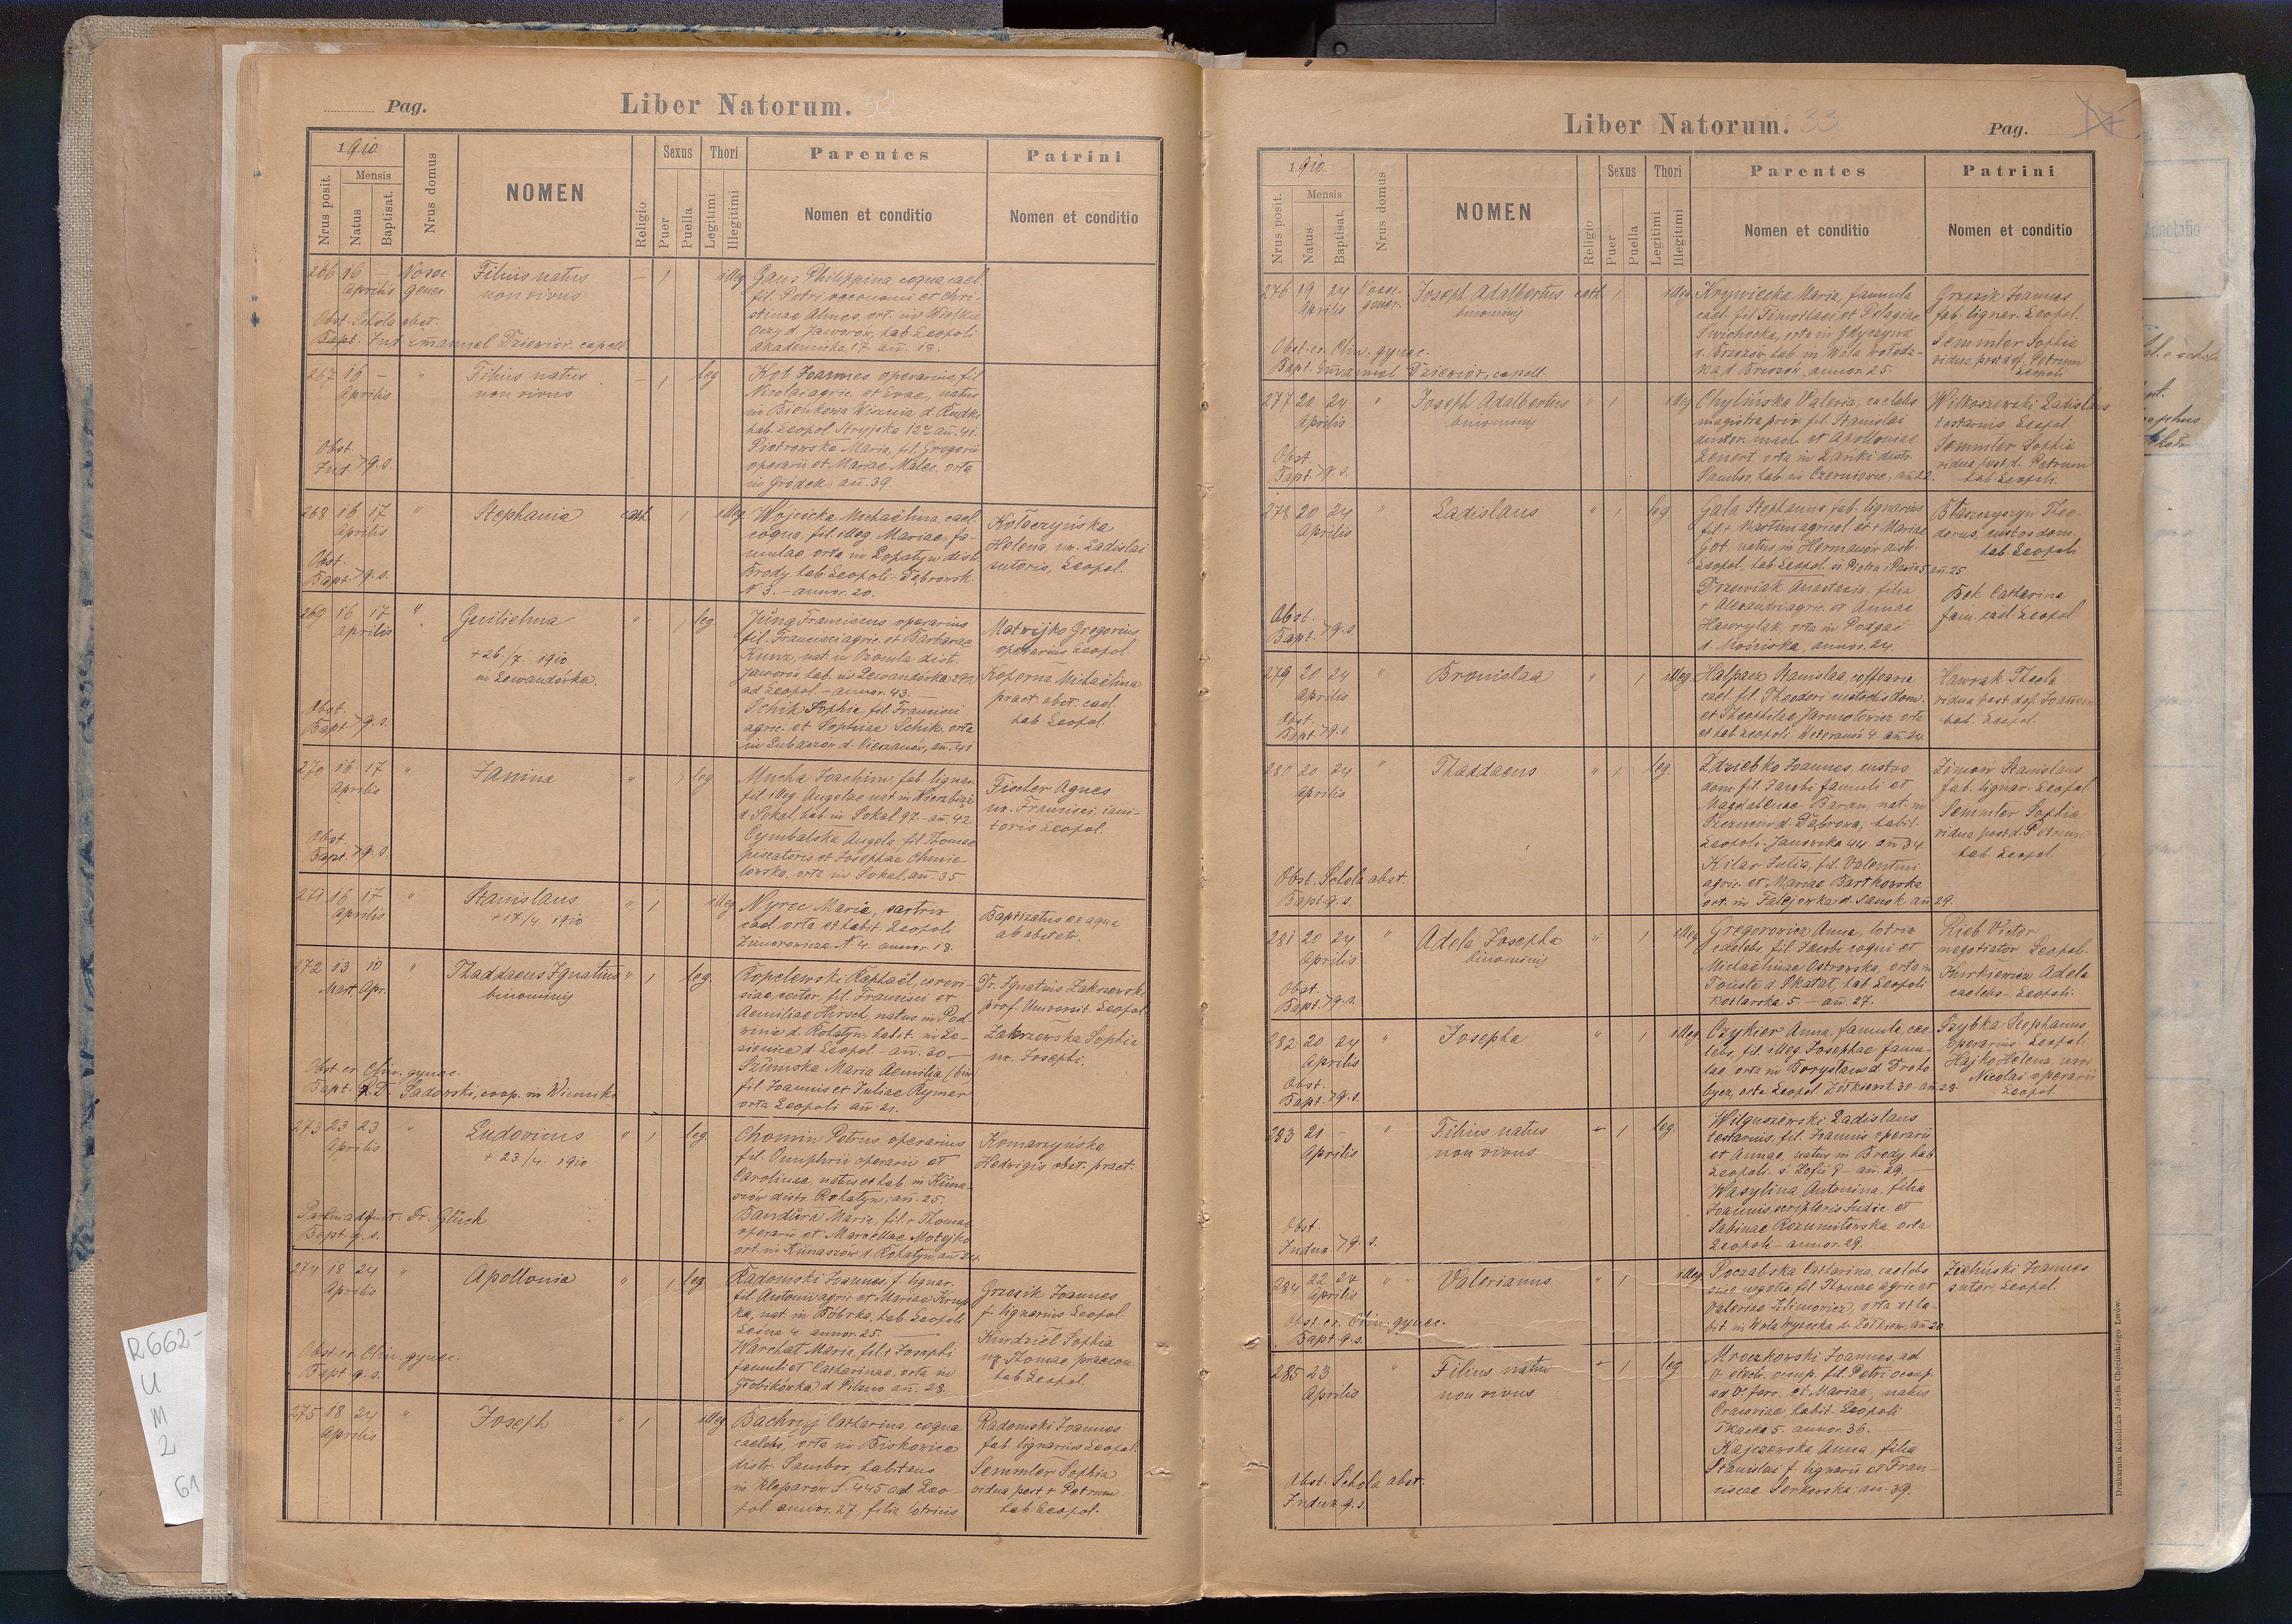 Pag.
Liber Natorum. 32
1910
Nrus posit.
Mensis
Natus
Baptisat.
Nrus domus
NOMEN
Religio
Sexus
Puer
Puella
Thori
Legitimi
Illegitimi
Parentes
Nomen et conditio
Patrini
Nomen et conditio
266 16 — Nosoc. Filius natus — 1 illeg Gaus Philippina coqua cael.
Aprilis gener non vivus fil. Petri oeconomi et Chri-
stinae Almes, ort. in Wielkie
Obst. Schola obst. Oczy d. Jaworów, hab. Leopoli
Bapt. Ind Emanuel Dziewior. capell. Akademicka 17. an. 18.
267 16 — " Filius natus — 1 leg Kot Joannes operarius, fil
Aprilis non vivus Nicolai agric. et Evae, natus
in Bieńkowa Wisznia d. Rudki
hab. Leopol. Stryjska 122 an. 41.
Obst. Piotrowska Maria, fil. Gregorii
Ind > q. s. operarii et Mariae Malec. orta
in Gródek, an. 39.
268 16 17 " Stephania cath 1 illeg Wójcicka Michaëlina cael. Kołaczyńska
Aprilis coqua, fil. illeg Mariae, fa- Helena, ux. Ladislai
mulae, orta in Łopatyn distr. sutoris, Leopol.
Obst. Brody, hab. Leopoli - Dąbrowsk.
Bapt. > q. s. N 3. - annor. 20.
269 16 17 " Guilielma " 1 leg Jung Franciscus operarius Matwijko Gregorius
Aprilis fil. Francisci agric. et Barbarae operarius Leopol
+ 26/7. 1910 Kunz, nat. in Ożomla dist. Koperna Michaëlina
in Lewandówka. Jaworów, hab. in Lewandówka 292 pract. obst. cael.
ad Leopol. - annor. 43. — hab Leopol.
Obst. Schik Sophia, fil Francisci
Bapt. > q. s. agric. et Sophiae Schik, orta
in Lubaczów d. Cieszanów, an. 41
270 16 17 " Janina " 1 leg Mucha Joachim, fab. lignar. Fischer Agnes
Aprilis fil. illeg. Angelae nat in Wierzbiąż ux. Francisci, iani-
d. Sokal, hab. in Sokal 97. - an. 42. toris Leopol.
Obst. Cymbalska Angela, fil. Thomae
Bapt. > q. s. piscatoris et Josephae Chmie-
lowska, orta in Sokal, an. 35
271 16 17 " Stanislaus " 1 illeg Nyrec Maria, sartrix Baptizatus ex aqua
Aprilis + 17/4. 1910 cael. orta et habit. Leopoli ab obstetr.
Zimorowicza N 4. annor. 18.
272 13 10 " Thaddaeus Ignatius " 1 leg. Kopelewski Raphaël, cerevi- Dr. Ignatius Zakrzewski
Mart. Apr. binominis siae coctor, fil. Francisci et prof. Universit. Leopol.
Aemiliae Hirsch, natus in Pod- Zakrzewska Sophia
winie d. Rohatyn, habit. in Le- ux. Josephi.
sienice d. Leopol - an. 30 —
Obst. ex Clin. gynaec. Szumska Maria Aemilia (bin)
Bapt. R. D. Sadowski, coop. in Winniki fil. Joannis et Juliae Rymar
orta Leopoli an. 21.
273 23 23 " Ludovicus " 1 leg. Chomin Petrus operarius Komarzyńska
Aprilis + 23/4. 1910 fil. Onuphrii operarii et Hedvigis obst. pract.
Carolinae, natus et hab. in Kuna-
szów distr. Rohatyn, an. 25.
Partui adfuit Dr. Glück Bandura Maria, fil. + Thomae
Bapt. q. s. operarii et Marcellae Motejko
ort. in Kunaszów d. Rohatyn, an. 24.
274 18 24 " Apollonia " 1 leg. Radomski Joannes, f. lignar. Grzesik Joannes
Aprilis fil. Antonii agric. et Mariae Krup- f. lignarius Leopol.
ka, nat. in Bóbrka, hab. Leopoli Kurdziel Sophia
Leśna 4. annor. 25. — ux. Thomae, praecon.
Obst. ex Clin. gynaec. Warchał Maria, fil. + Josephi hab. Leopol.
Bapt. q. s. famuli et Catharinae, orta in
Głobikówka d Pilzno an. 28.
275 18 24 " Joseph " 1 illeg Bachryj Catharina, coqua Radomski Joannes
Aprilis caelebs, orta in Biskowice fab. lignarius Leopol.
distr. Sambor, habitans Semmler Sophia
in Kleparów S. 445 ad Leo- vidua post + Petrum
pol annor. 27, filia lotricis hab Leopol.
Liber Natorum. 33
Pag.
1910.
Nrus posit.
Mensis
Natus
Baptisat.
Nrus domus
NOMEN
Religio
Sexus
Puer
Puella
Thori
Legitimi
Illegitimi
Parentes
Nomen et conditio
Patrini
Nomen et conditio
276 19 24 Nosoc. Joseph Adalbertus cath 1 illeg Krywiecka Maria, famula Grzesik Joannes
Aprilis gener. binominis cael. fil. Timothaei et Pelagiae fab. lignar. Leopol.
Świchocka, orta in Gdyczyna Semmler Sophia
Obst. ex Clin. gynaec. d. Brzozów, hab. in Wola wołodz- vidua post def. Petrum
Bapt. Emanuel Dziewior, capell. ka d Brzozów, annor. 25. Leopoli
277 20 24 " Joseph Adalbertus " 1 illeg Chylińska Valeria, caelebs Wilkoszewski Ladislaus
Aprilis binominis magistra priv. fil. Stanislai testarius Leopol.
auctor. mach. et Apolloniae Semmler Sophia
Obst. Lenert orta in Łanki distr. vidua post d. Petrum
Bapt. > q. s. Sambor, hab. in Czerniowce, an. 22. hab. Leopoli.
278 20 24 " Ladislaus " 1 leg. Gala Stephanus, fab. lignarius Błaszczyszyn Theo-
Aprilis fil. + Martini agricol. et + Mariae dorus, custos dom.
Got. natus in Hermanów distr. hab. Leopoli
Leopol, hab. Leopol. ś. Piotra i Pawła 5, an. 25
Drzewiak Anastasia, filia Bek Catharina
+ Alexandri agric. et Annae fam. cael. Leopol
Obst. Hawrylak, orta in Podgać
Bapt. > q. s. d. Mościska, annor. 24.
279 20 24 " Bronislaa " 1 illeg. Halpaux Stanislaa, coffearia Hawrak Thecla
Aprilis cael. fil. Theodori custodis dom. vidua post def. Joannem
Obst. et Theophilae Jarmołowicz, orta hab. Leopol.
Bapt. > q. s. et hab. Leopoli Weteranów 4. an. 24
280 20 24 " Thaddaeus " 1 leg. Zdziebko Joannes, custos Zimoń Stanislaus
Aprilis dom. fil. Jacobi famuli et fab. lignar. Leopol
Magdalenae Baran, nat. in Semmler Sophia
d. Dąbrowa, habit. vidua post d. Petrum
Leopoli - Janowska 44 an. 34 hab. Leopol.
Obst. Schola obst. Kilar Julia, fil. Valentini
Bapt. q. s. agric. et Mariae Bartkowska
ort. in Falejówka d. Sanok an. 29.
281 20 24 " Adela Josepha " 1 illeg Gregorowicz Anna, lotrix Rieb Victor
Aprilis binominis caelebs, fil. Jacobi coqui et negotiator Leopol.
Michaëlinae Ostrowska, orta in Kurkiewicz Adela
Obst. Touste d. Skałat, hab Leopoli caelebs - Leopoli.
Bapt. > q. s. Kotlarska 5. - an. 27.
282 20 24 " Josepha " 1 illeg Czykier Anna, famula, cae- Szybka Stephanus
Aprilis lebs, fil. illeg. Josephae famu- operarius Leopoli
Obst. lae, orta in Borysław d. Droho- Hajko Helena, uxor
Bapt. > q. s. bycz, orta Leopol. Żółkiewsk. 30. an. 28. Nicolai operarii
Leopol
283 21 — " Filius natus + 1 leg. Wilguszewski Ladislaus
Aprilis non vivus testarius, fil. Joannis operarii
et Annae, natus in Brody, hab
Leopoli - ś. Zofii 9 - an. 29. —
Wasylina Antonina, filia
Joannis scriptoris Judic. et
Obst. Sabinae Rozumiłowska orta
Indux > q. s. Leopoli - annor. 29.
284 22 24 " Valerianus " 1 illeg. Poczabska Catharina, caelebs Zieliński Joannes
Aprilis sine negotio, fil. Thomae agric. et sutor, Leopol.
Obst. ex Clin. gynaec. Valeriae Klimowicz, orta et ha-
Bapt. q. s. bit. in Wola wysocka d. Żółkiew, an. 20
285 23 " Filius natus + 1 leg Mroczkowski Joannes, ad
Aprilis non vivus V. electr. occup. fil. Petri occup.
ad V. ferr. et Mariae, natus
Cracoviae habit. Leopoli
Tkacka 5. annor. 36. —
Kajzewska Anna, filia
Obst. Schola obst. Stanislai f. lignarii et Fran-
Indux. q. s. ciscae Serkowska, an. 39.
Drukarnia Katolicka Józefa Chęcińskiego Lwów.
Adnotatio
R662-
U
M
2
61